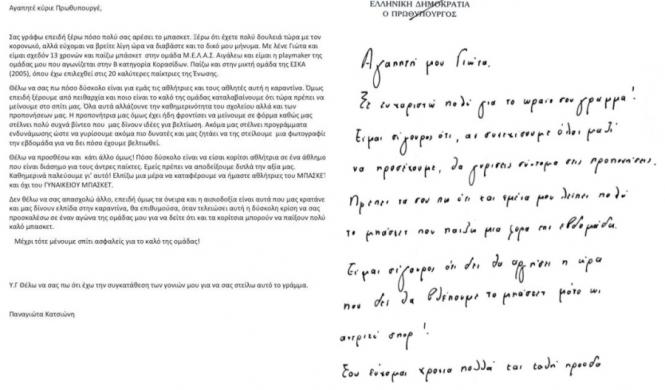 Αγαπητέ κύριε Πρωθυπουργέ,
Σας γράφω επειδή ξέρω πόσο πολύ σας αρέσει το μπασκετ. Ξέρω ότι έχετε πολύ δουλειά τώρα με τον
κορονωιό, αλλά εύχομαι να βρείτε λίγη ώρα να διαβάστε και το δικό μου μήνυμα. Με λένε Γιώτα και
είμαι σχεδόν 13 χρονών και παίζω μπασκετ στην ομάδα Μ.Ε.Λ.Α.Σ. Αιγάλεω και είμαι η playmaker της
ομάδας μου που αγωνίζεται στην Β κατηγορία Κορασίδων. Παίζω και στην μικτή ομάδα της ΕΣΚΑ
(2005), όπου έχω επιλεχθεί στις 20 καλύτερες παίκτριες της Ένωσης.
Θέλω να σας πω πόσο δύσκολο είναι για εμάς τις αθλήτριες και τους αθλητές αυτή η καραντίνα. Όμως
επειδή ξέρουμε από πειθαρχία και ποιο είναι το καλό της ομάδας καταλαβαίνουμε ότι τώρα πρέπει να
μείνουμε στο σπίτι μας. Όλα αυτά αλλάζουνε την καθημερινότητα του σχολείου αλλά και των
προπονήσεων μας. Η προπονήτρια μας όμως έχει ήδη φροντίσει να μείνουμε σε φόρμα καθώς μας
στέλνει πολύ συχνά βίντεο που μας δίνουν ιδέες για βελτίωση. Ακόμα μας στέλνει προγράμματα
ενδυνάμωσης ώστε να γυρίσουμε ακόμα πιο δυνατές και μας ζητάει να της στείλουμε μια φωτογραφία
την εβδομάδα για να δει πόσο έχουμε βελτιωθεί.
Θέλω να προσθέσω και κάτι άλλο όμως! Πόσο δύσκολο είναι να είσαι κορίτσι αθλήτρια σε ένα άθλημα
που είναι διάσημο για τους άντρες παίκτες. Εμείς πρέπει να αποδείξουμε διπλά την αξία μας.
Καθημερινά παλεύουμε γι' αυτό! Ελπίζω μια μέρα να καταφέρουμε να ήμαστε αθλήτριες του ΜΠΑΣΚΕΤ
και όχι του ΓΥΝΑΙΚΕΙΟΥ ΜΠΑΣΚΕΤ.
Δεν θέλω να σας απασχολώ άλλο, επειδή όμως τα όνειρα και η αισιοδοξία είναι αυτά που μας κρατάνε
και μας δίνουν ελπίδα στην καραντίνα, θα επιθυμούσα, όταν τελειώσει αυτή η δύσκολη κρίση να σας
προσκαλέσω σε έναν αγώνα της ομάδας μου για να δείτε ότι και τα κορίτσια μπορούν να παίξουν πολύ
καλό μπασκετ.
Μέχρι τότε μένουμε σπίτι ασφαλείς για το καλό της ομάδας!
Υ.Γ Θέλω να σας πω ότι έχω την συγκατάθεση των γονιών μου για να σας στείλω αυτό το γράμμα.
Παναγιώτα Κατσιώνη
ΕΛΛΗΝΙΚΗ ΔΗΜΟΚΡΑΤΙΑ
Ο ΠΡΩΘΥΠΟΥΡΓΟΣ
Αγαπητή μου Γιώτα,
Σε ευχαριστώ πολύ για το ωραίο σου γράμμα!
Είμαι σίγουρος ότι, αν συνεχίσουμε όλοι μαζί
να προσέχουμε, θα γυρίσεις σύντομα στις προπονήσεις.
Πρέπει να σου πω ότι και εμένα μου λείπει πολύ
το μπάσκετ που παίζω μια φορά την εβδομάδα.
Είμαι σίγουρος ότι δεν θα αργήσει η ώρα
που δεν θα βλέπουμε το μπάσκετ μόνο ως
αντρικό σπορ!
Σου εύχομαι χρόνια πολλά και καλή πρόοδο